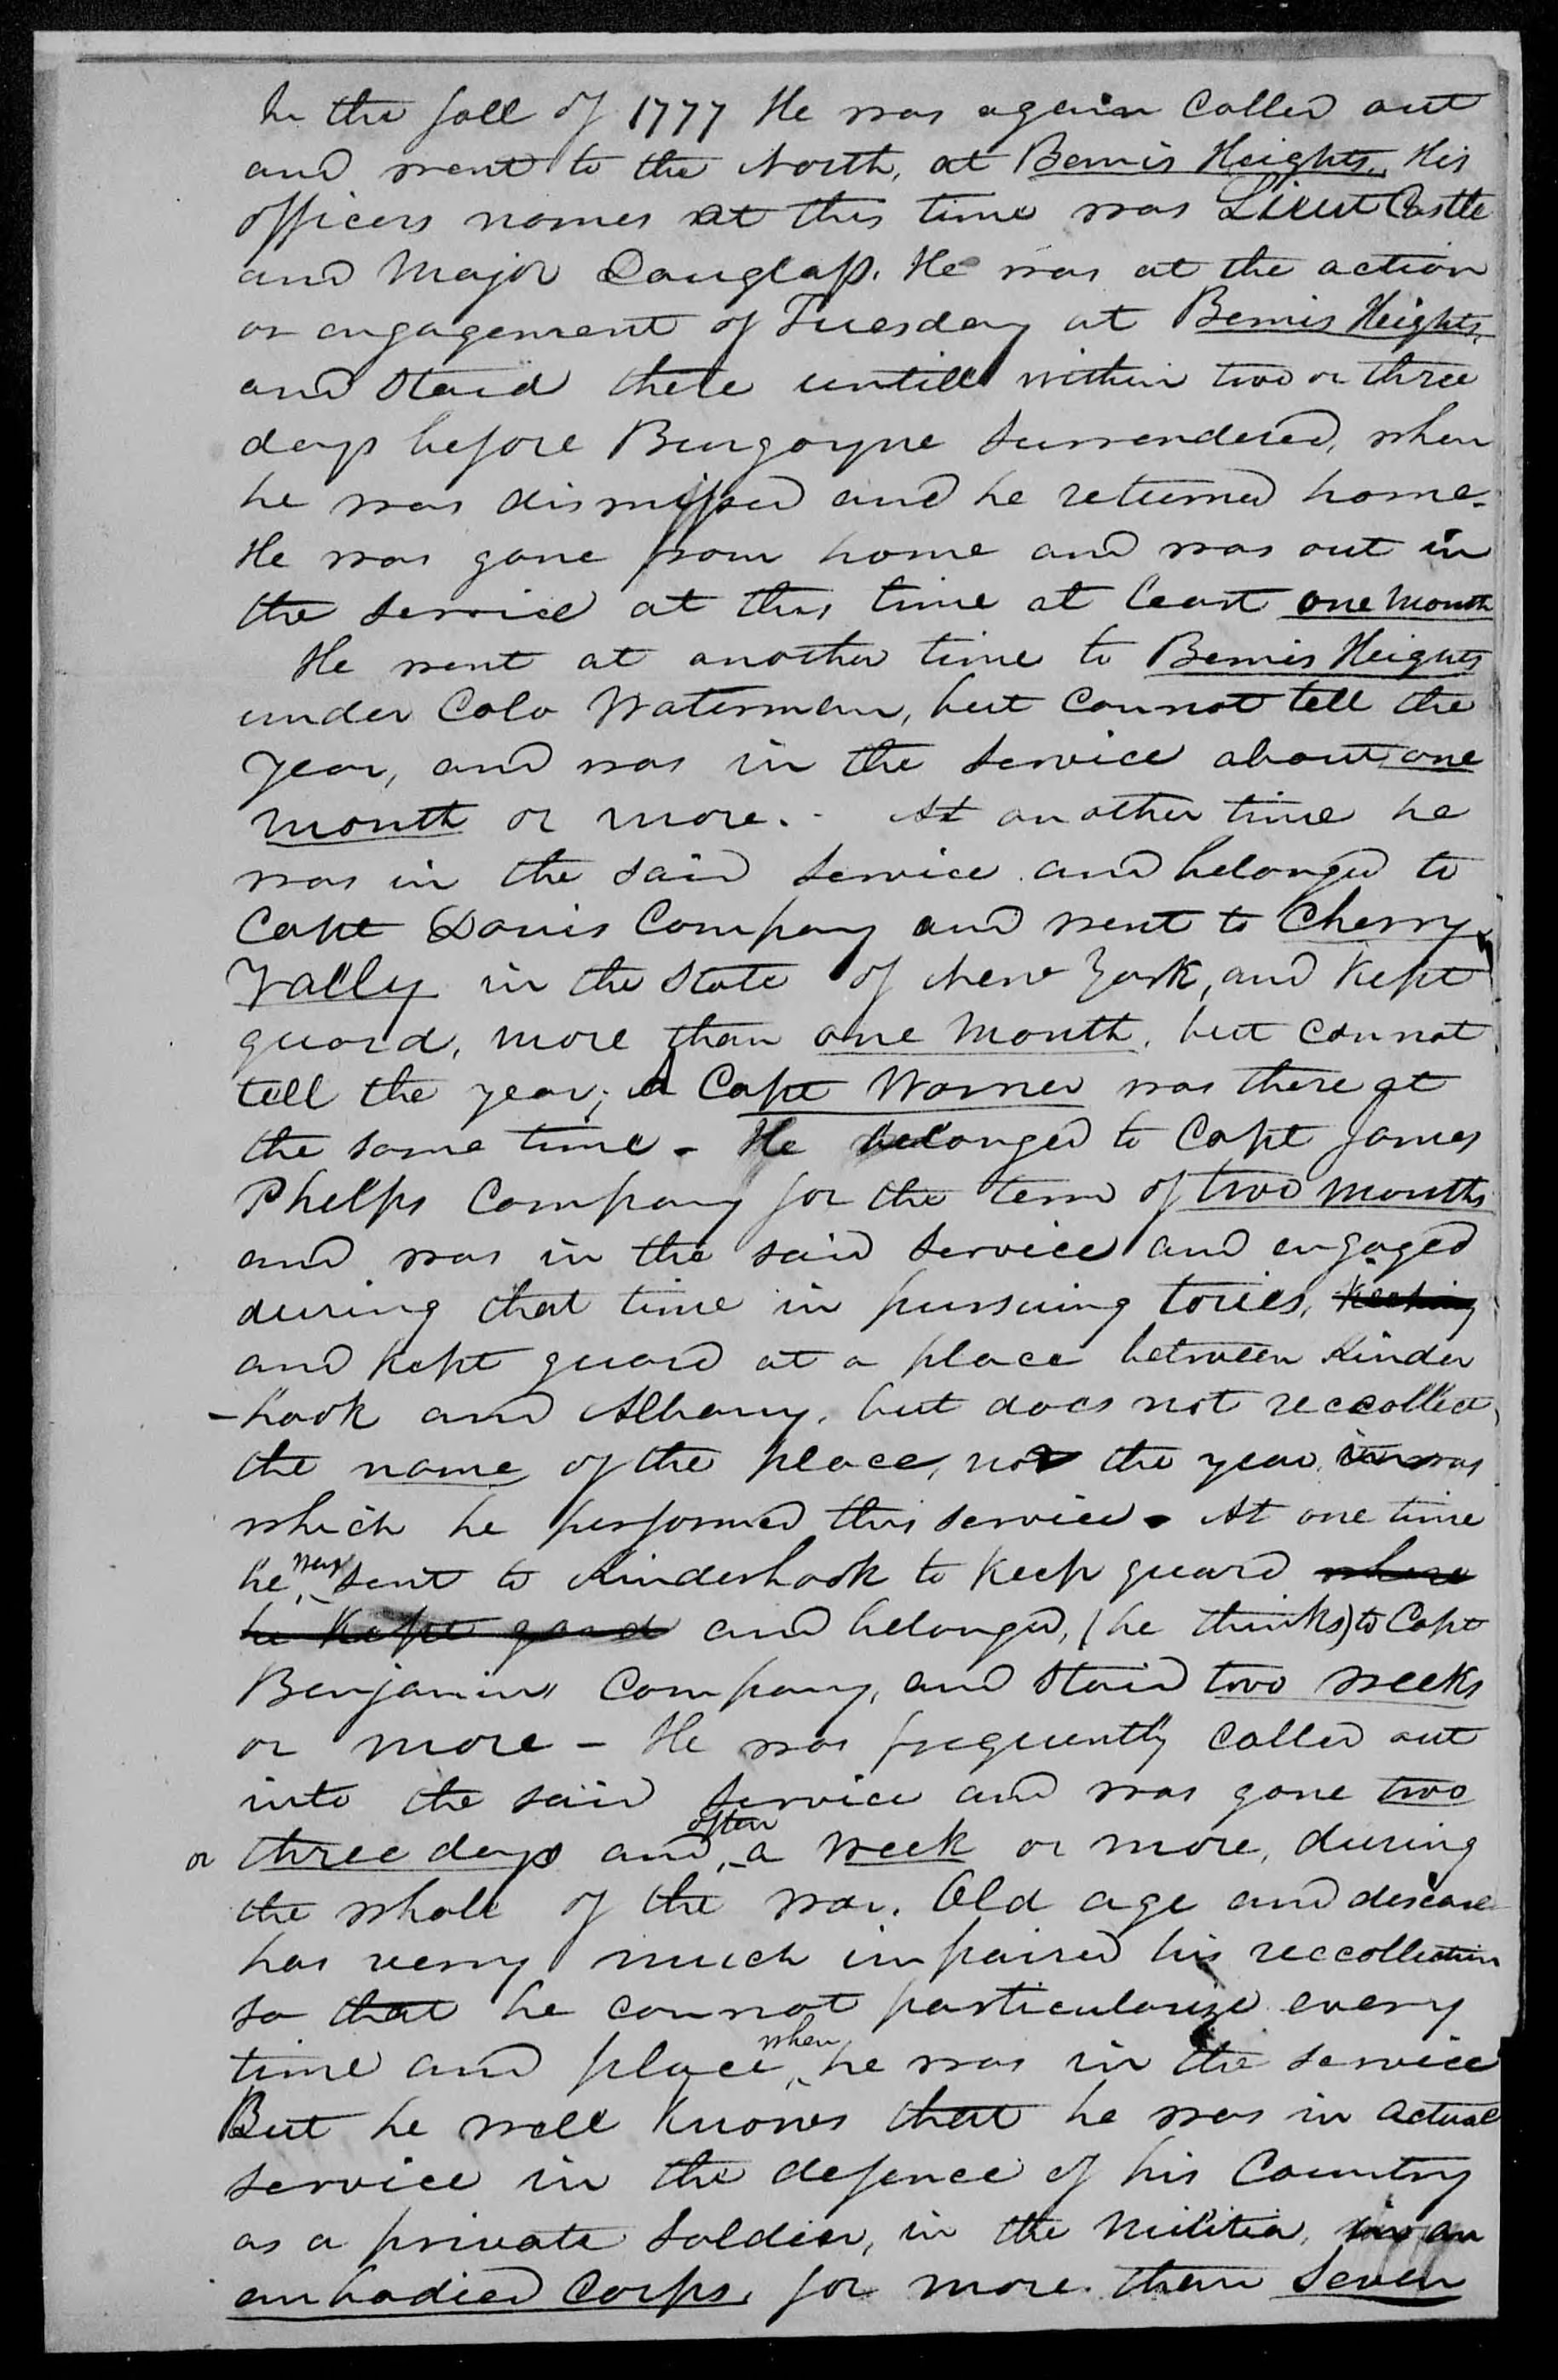 In the fall of 1777 He was again Called out
and went to the North, at Bemis Heights. His
officers names at this time was Lieut Castle
and Major Douglass. He was at the action
or engagement of Tuesday at Bemis Heights,
and Staid there untill within two or three
days before Burgoyne Surrendered, when
he was dismissed and he returned home.
He was gone from home and was out in
the Service at this time at least one Month
He went at another time to Bemis Heights
under Colo Waterman, but Cannot tell the
year, and was in the Service about one
month or more. - At another time he
was in the said Service and belonged to
Capt Davis Company and went to Cherry
Vally in the State of New York, and Kept
guard, more than one Month, but cannot
tell the year; A Capt Warner was there at
the same time - He belonged to Capt James
Phelps Company for the term of two Months
and was in the said Service and engaged
during that time in pursuing tories, Keeping
and Kept guard at a place between Kinder
-hook and Albany, but does not reccollect
the name of the place, nor the year in
which he performed this Service. At one time
he was sent to Kinderhook to Keep guard where
he Kept gard and belonged, (he thinks) to Capt
Benjamins Company, and Staid two weeks
or more - He was frequently called out
into the said Service and was gone two
or three days and often a week or more, during
the whole of the war. Old age and disease
has verry much impaired his reccollection
so that he cannot particularize every
time and place when he was in the service
But he well Knows that he was in actual
service in the defence of his Country
as a private Soldier, in the Militia, in an
embodied Corps, for more than Seven